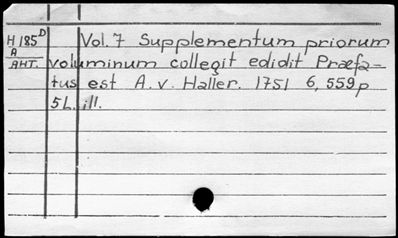 H185D Vol. 7 Supplementum priorum
A
AHT. voluminum collegit edidit Præfa-
tus est A. v. Haller. 1751 6, 559p
5L. ill.